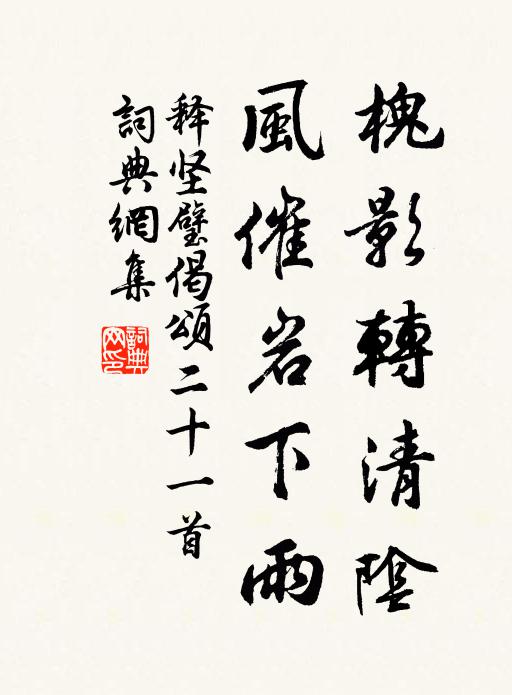 槐影轉清陰
風催岩下雨
释坚璧偈頌二十一首
詞典網集
詞典網印